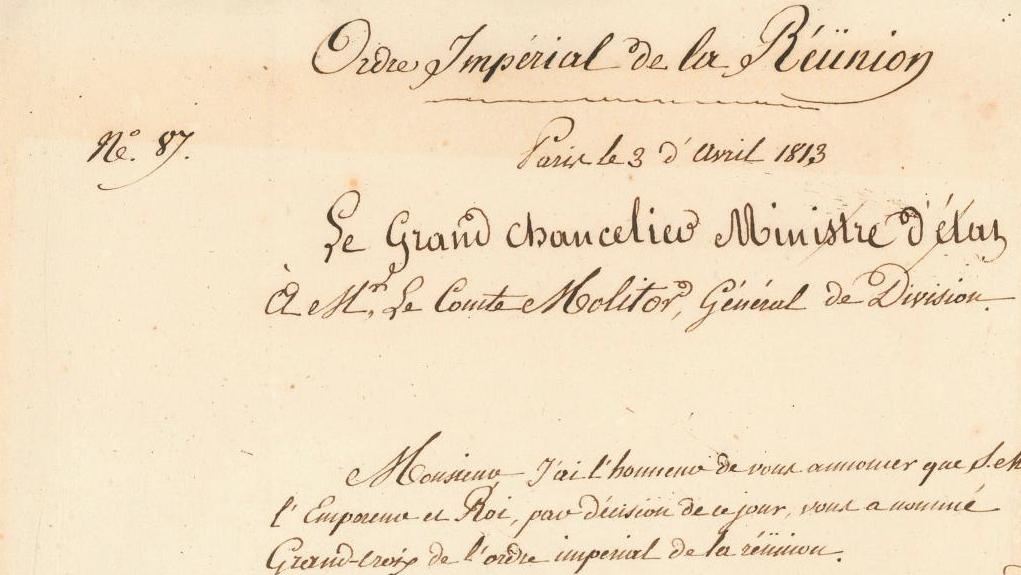 Ordre Impérial de la Réünion
No. 87.
Paris le 3 d'Avril 1813
Le Grand chancelier Ministre d'état
À Mr. Le Comte Molitor, Général de Division.
Monsieur J'ai l'honneur de vous annoncer que S. M
l'Empereur et Roi, par décision de ce jour, vous a nommé
Grand-Croix de l'ordre impérial de la réünion.